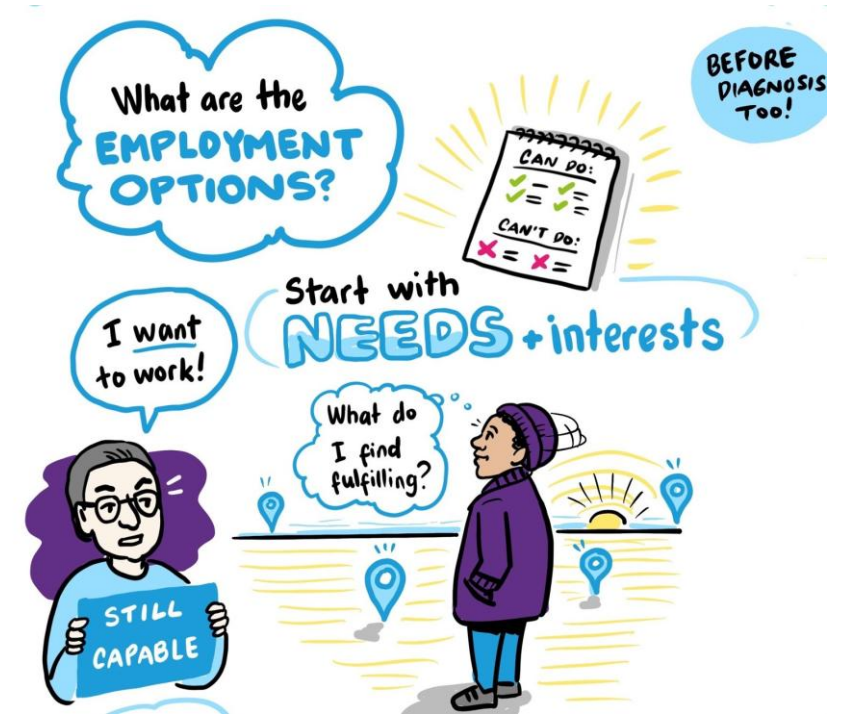 What are the
EMPLOYMENT
OPTIONS?
BEFORE
DIAGNOSIS
TOO!
CAN DO:
CAN'T DO:
Start with
NEEDS + interests
I want
to work!
What do
I find
fulfilling?
STILL
CAPABLE